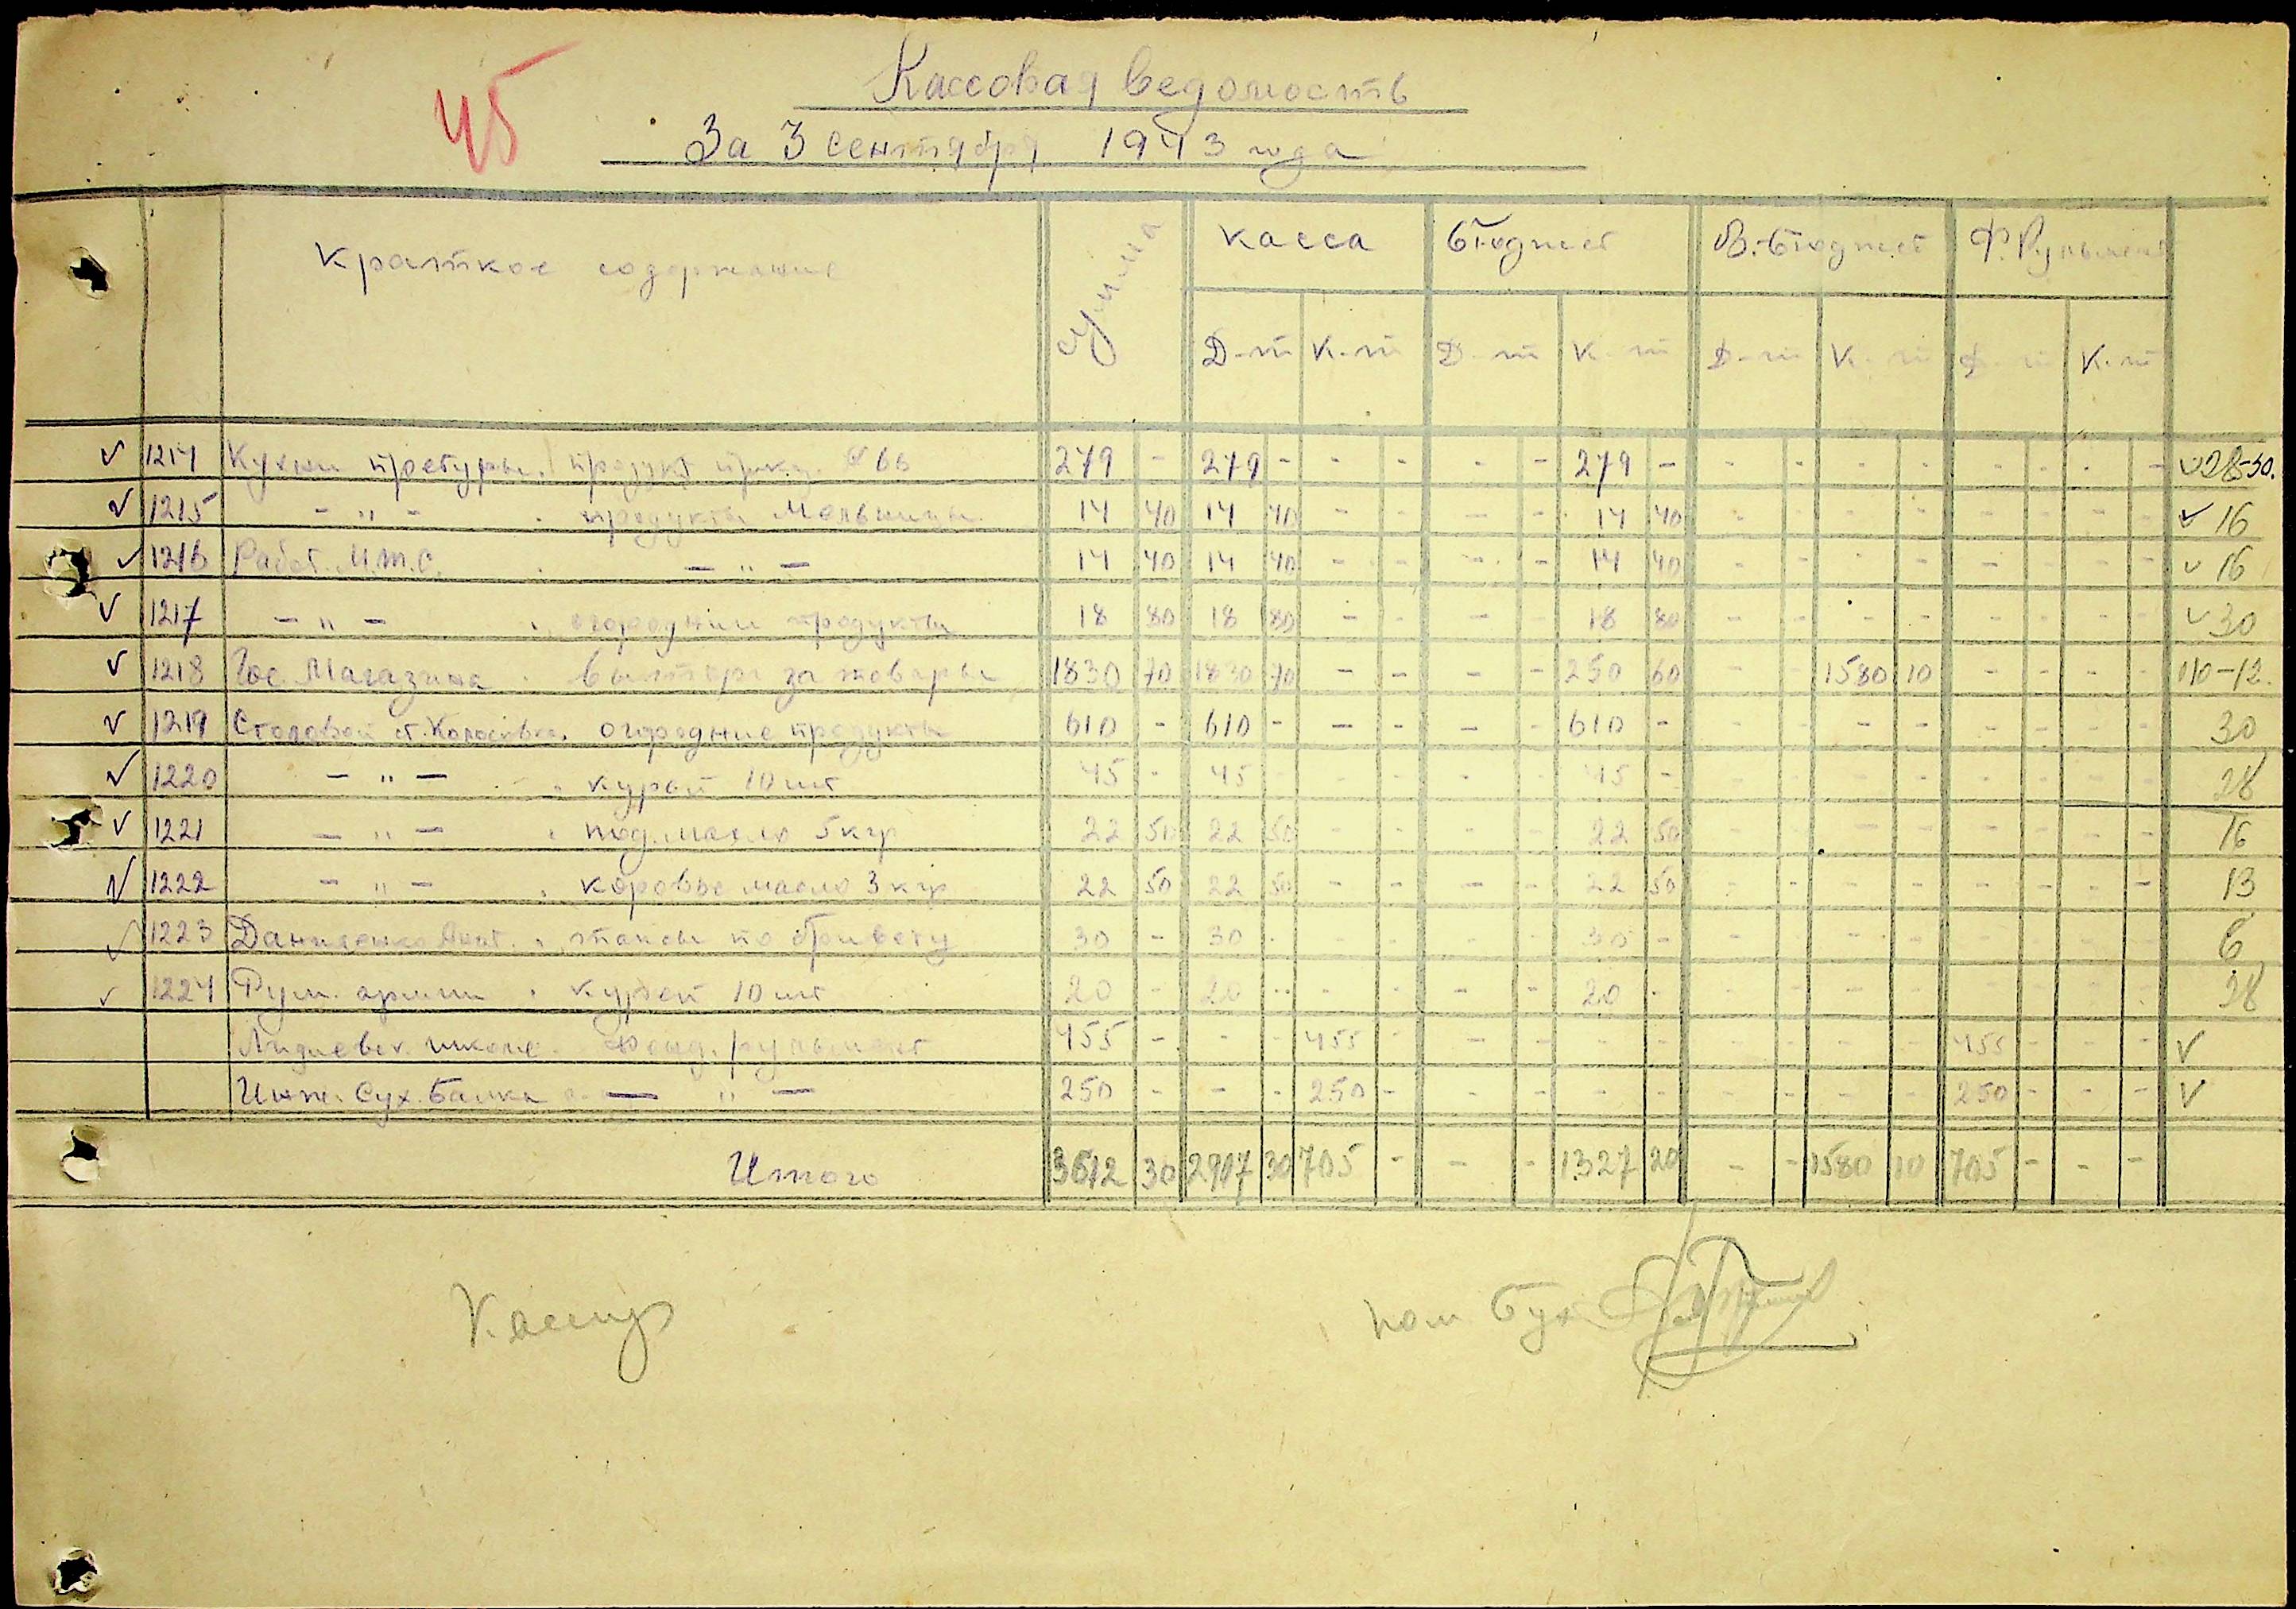 45
Кассовая ведомость
За 3 сентября 1943 года
Краткое содержание Сумма Касса Бюджет В.-Бюджет Ф. Рулымент
Д-т К-т Д-т К-т Д-т К-т Д-т К-т
✓ 1214 Кухни претуры. продукт 279 - 279 - - - - - 279 - - - - - - - - - ✓ 28-30.
✓ 1215 - " - . продукты Мельницы 14 40 14 40 - - - - 14 40 - - - - - - - - ✓ 16
✓ 1216 Работ. М.Т.С. . - " - 14 40 14 40 - - - - 14 40 - - - - - - - - ✓ 16
✓ 1217 - " - . огородние продукты 18 80 18 80 - - - - 18 80 - - - - - - - - ✓ 30
✓ 1218 Гос. Магазина . выторг за товары 1830 70 1830 70 - - - - 250 60 - - 1580 10 - - - - 110-12.
✓ 1219 Столовой ст. Колосовка. огородние продукты 610 - 610 - - - - - 610 - - - - - - - - - 30
✓ 1220 - " - . курей 10 шт 45 - 45 - - - - - 45 - - - - - - - - - 28
✓ 1221 - " - . под. масло 5 кгр 22 50 22 50 - - - - 22 50 - - - - - - - - 16
✓ 1222 - " - . коровье масло 3 кгр 22 50 22 50 - - - - 22 50 - - - - - - - - 13
✓ 1223 Даниленко . по 30 - 30 - - - - - 30 - - - - - - - - - 6
✓ 1224 Рум. армии . курей 10 шт 20 - 20 - - - - - 20 - - - - - - - - - 28
Лидиевск. школе. Фонд. рулымент 455 - - - 455 - - - - - - - - - 455 - - - ✓
Сух. Балка - " - 250 - - - 250 - - - - - - - - - 250 - - - ✓
Итого 3612 30 2907 30 705 - - - 1327 20 - - 1580 10 705 - - -
Кассир
пом. Бух.